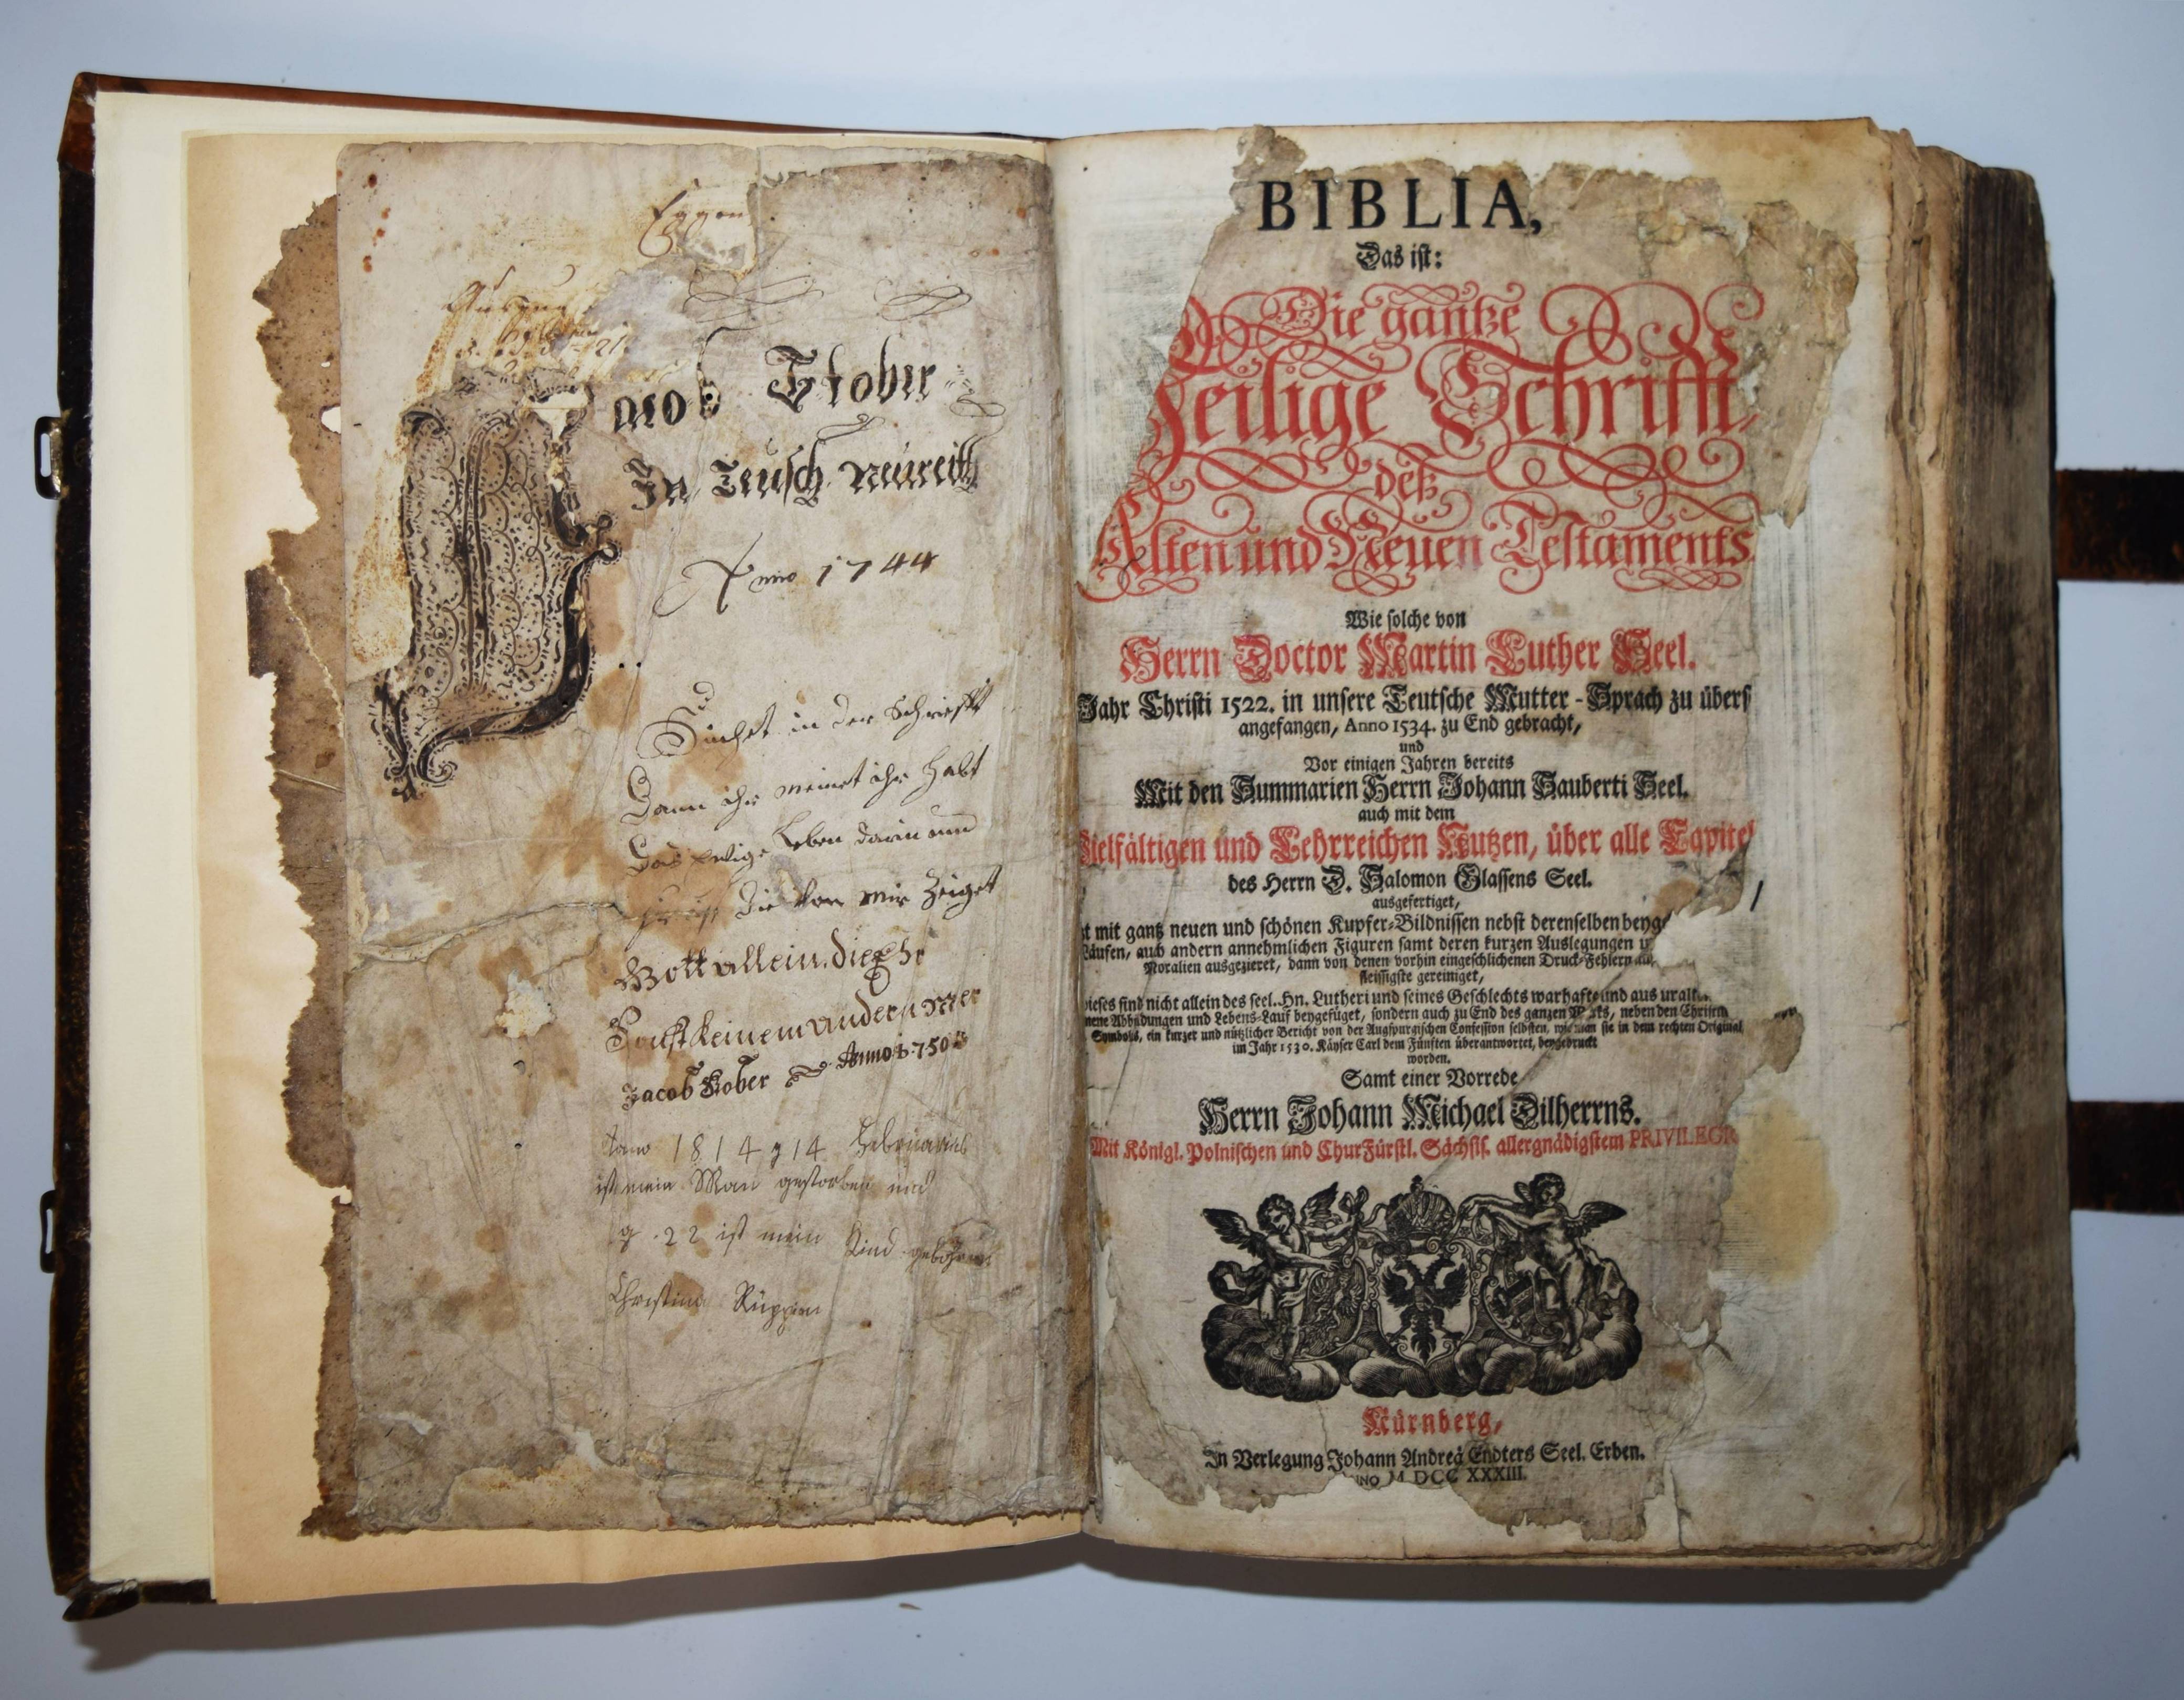 Eggen
acob Kober
In Teusch neureitt
Anno 1744
Suchet in der Schriefft
Dann ihr meinet ihr habt
Das ewige Leben darin und
die von mir Zeiget
Gott allein die Ehr
Sonst keinem andern mer
Jacob Kober Anno 1750
Anno 1814 g 14 Februarius
ist mein Man gestorben und
g. 22 ist mein Kind gebohren
Christina
BIBLIA,
Das ist:
Die gantze
Heilige Schrifft
deß
Alten und Neuen Testaments
Wie solche von
Herrn Doctor Martin Luther Seel.
Jahr Christi 1522. in unsere Teutsche Mutter-Sprach zu übers
angefangen, Anno 1534. zu End gebracht,
und
Vor einigen Jahren bereits
Mit den Summarien Herrn Johann Sauberti Seel.
auch mit dem
Vielfältigen und Lehrreichen Nutzen, über alle Capitel
des Herrn D. Salomon Glassens Seel.
ausgefertiget,
mit gantz neuen und schönen Kupfer-Bildnissen nebst derenselben beyge
Läufen, auch andern annehmlichen Figuren samt deren kurzen Auslegungen u
Moralien ausgezieret, dann von denen vorhin eingeschlichenen Druck-Fehlern
fleissigste gereiniget,
dieses sind nicht allein des seel. Hn. Lutheri und seines Geschlechts warhafte und aus uralt
mene Abbildungen und Lebens-Lauf beygefüget, sondern auch zu End des ganzen Werks, neben den Christ
Symbolis, ein kurzer und nützlicher Bericht von der Augspurgischen Confession selbsten, wie man sie in dem rechten Original
im Jahr 1530. Käyser Carl dem Fünften überantwortet, beygedruckt
worden.
Samt einer Vorrede
Herrn Johann Michael Dilherrns.
Mit Königl. Polnischen und ChurFürstl. Sächsis. allergnädigstem PRIVILEGI
Nürnberg,
In Verlegung Johann Andreä Endters Seel. Erben.
NO M DCC XXXIII.